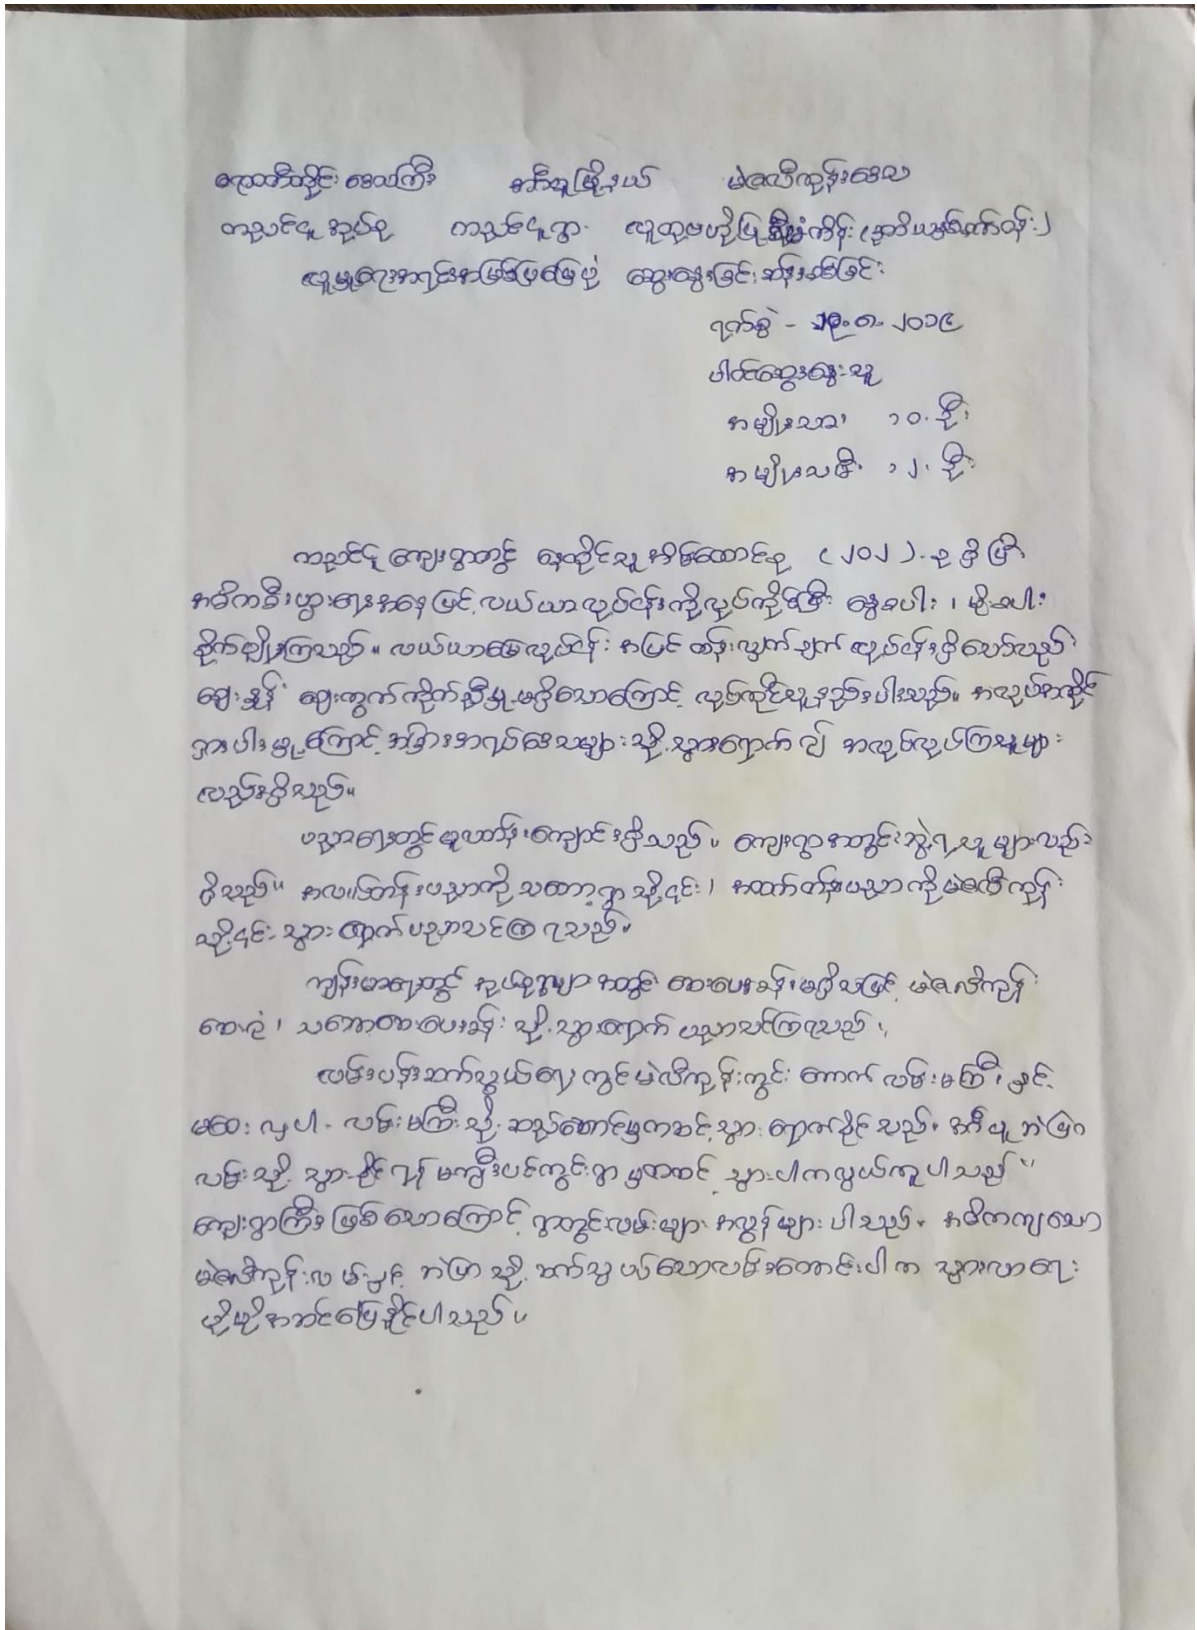 ဧရာဝတီတိုင်းဒေသကြီး အင်္ဂပူမြို့နယ် မဲဇလီကုန်းဒေသ
ကညင်ငူအုပ်စု ကညင်ငူရွာ လူထုဗဟိုပြုစီမံကိန်း (ဒုတိယအဆက်တိုး)
လူမှုရေးအရင်းအမြစ်ပြမြေပုံ ဆွေးနွေးခြင်း၊ ဆန်းစစ်ခြင်း
ရက်စွဲ - ၂၀၁၉
ပါဝင်ဆွေးနွေးသူ
အမျိုးသား ၁၀ ဦး
အမျိုးသမီး ၁၂ ဦး
ကညင်ငူကျေးရွာတွင် နေထိုင်သူအိမ်ထောင်စု (၂၀၂) စုရှိပြီး
အဓိကစီးပွားရေးအနေဖြင့် လယ်ယာလုပ်ငန်းကိုလုပ်ကိုင်ပြီး နွေစပါး၊ မိုးစပါး
စိုက်ပျိုးကြသည်။ လယ်ယာမြေလုပ်ငန်း အပြင် ထန်းလျှက်ချက်လုပ်ငန်းရှိသော်လည်း
ဈေးနှုန်း ဈေးကွက်ကိုက်ညီမှုမရှိသောကြောင့် လုပ်ကိုင်သူနည်းပါးသည်။ အလုပ်အကိုင်
ရှားပါးမှုကြောင့် အခြားအရပ်ဒေသများသို့ သွားရောက်၍ အလုပ်လုပ်ကြသူများ
လည်းရှိသည်။
ပညာရေးတွင် မူလတန်းကျောင်းရှိသည်။ ကျေးရွာအတွင်းဘွဲ့ရသူများလည်း
ရှိသည်။ အလယ်တန်းပညာကို သဘော့ရွာသို့၎င်း၊ အထက်တန်းပညာကို မဲဇလီကုန်း
သို့၎င်း သွားရောက်ပညာသင်ကြရသည်။
ကျန်းမာရေးတွင် အုပ်စုရွာများအတွင်း ဆေးပေးခန်းမရှိသဖြင့် မဲဇလီကုန်း
ဆေးရုံ၊ သဘော့ဆေးပေးခန်း သို့ သွားရောက် ပညာသင်ကြရသည်။
လမ်းပန်းဆက်သွယ်ရေးတွင် မဲလီကုန်းကွင်းကောက်လမ်းမကြီးနှင့်
မထေးလှပါ လမ်းမကြီးသို့ ဆည်တောင်မှတဆင့် သွားရောက်နိုင်သည်။ အင်္ဂပူ ဘဲမြာ
လမ်းသို့ သွားနိုင်ရန် မကျီးပင်ကွင်းရွာမှတဆင့် သွားပါကလွယ်ကူပါသည်။
ကျေးရွာကြီးဖြစ်သောကြောင့် ရွာတွင်းလမ်းများ အလွန်များပါသည်။ အဓိကကျသော
မဲဇလီကုန်းလမ်းနှင့် ဘဲမြာသို့ ဆက်သွယ်သောလမ်းကောင်းပါက သွားလာရေး
ပိုမိုအဆင်ပြေနိုင်ပါသည်။